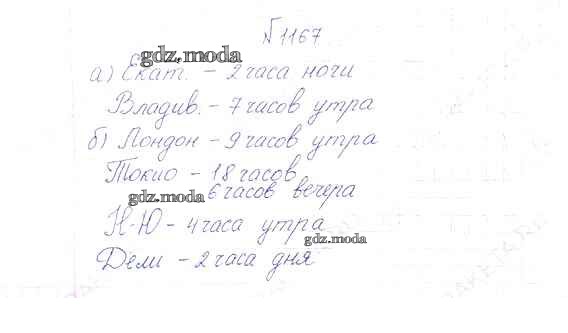 №1167
gdz.moda
а) Екат. – 2 часа ночи
Владив. – 7 часов утра
б) Лондон – 9 часов утра
Токио – 18 часов
gdz.moda 6 часов вечера
Н-Ю – 4 часа утра
gdz.moda
Дели – 2 часа дня